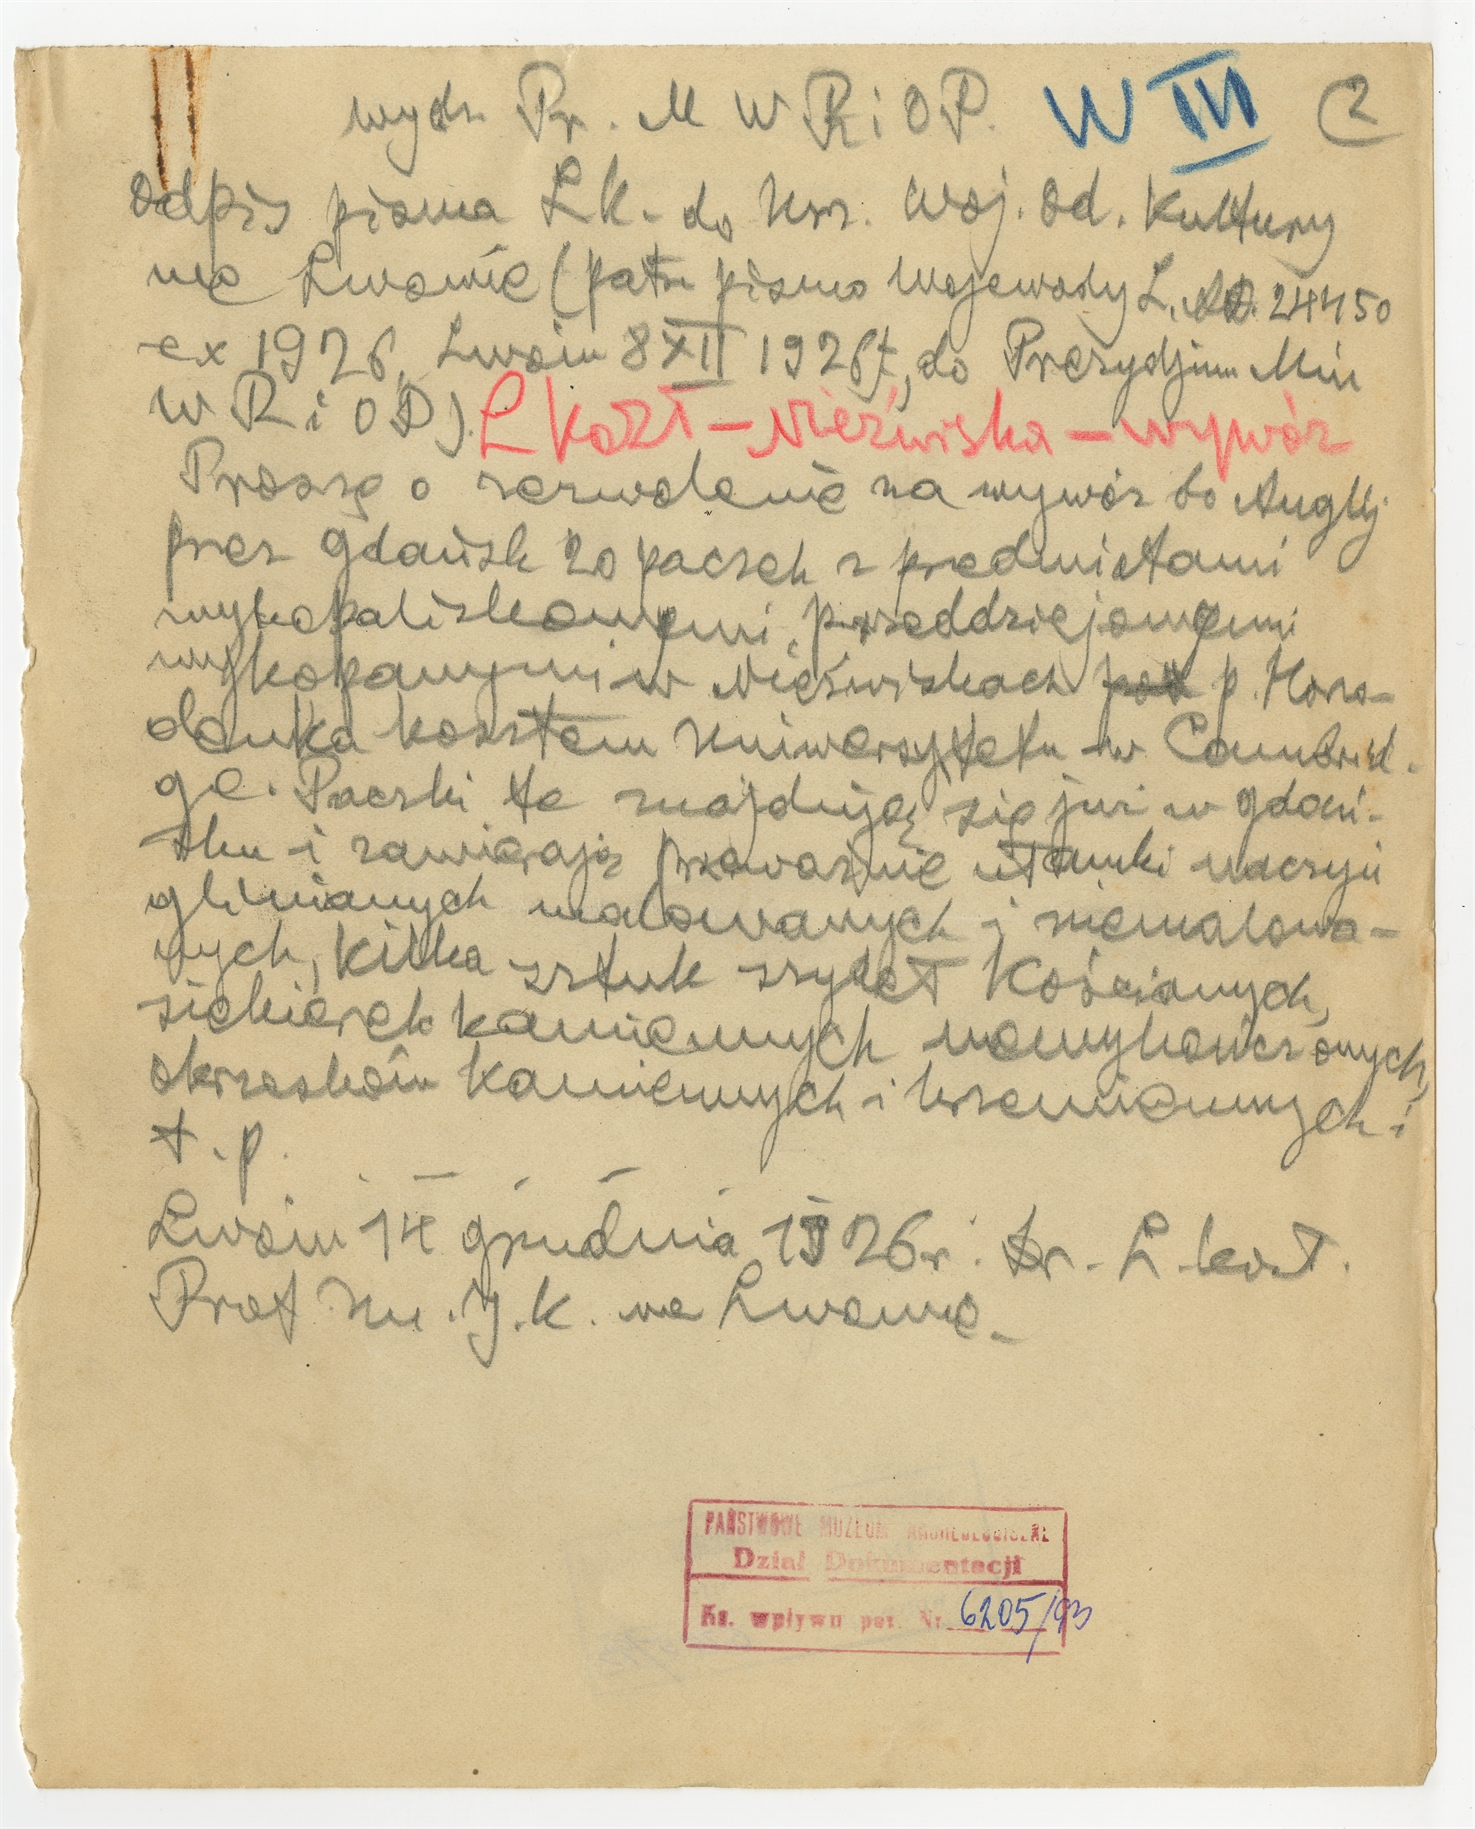 wydz. Pr. M W R i O P. W III 2
Odpis pisma L K. do Urz. Woj. Od. Kultury
we Lwowie (patrz pismo Wojewody L. 24450
ex 1926, Lwów 8 XII 1926 r, do Prezydjum Min
W R i O P).
L Kozł – Nieźwiska – wywóz
Proszę o zezwolenie na wywóz do Anglij
przez Gdańsk 20 paczek z przedmiotami
wykopaliskowymi, przeddziejowymi
wykopanymi w Nieźwiskach p. Horo-
denka kosztem Uniwersytetu w Cambrid-
ge. Paczki te znajdują się już w Gdań-
sku i zawierają przeważnie ułamki naczyń
glinianych malowanych i niemalowa-
nych, kilka sztuk szydeł kościanych,
siekierek kamiennych niewykończonych,
okrzesków kamiennych i krzemiennych i
t. p.
Lwów 14 grudnia 1926 r. Dr. L. Kozł.
Prof Un. J. K. we Lwowie.
PAŃSTWOWE MUZEUM ARCHEOLOGICZNE
Dział Dokumentacji
Ks. wpływu poz. Nr. 6205/93